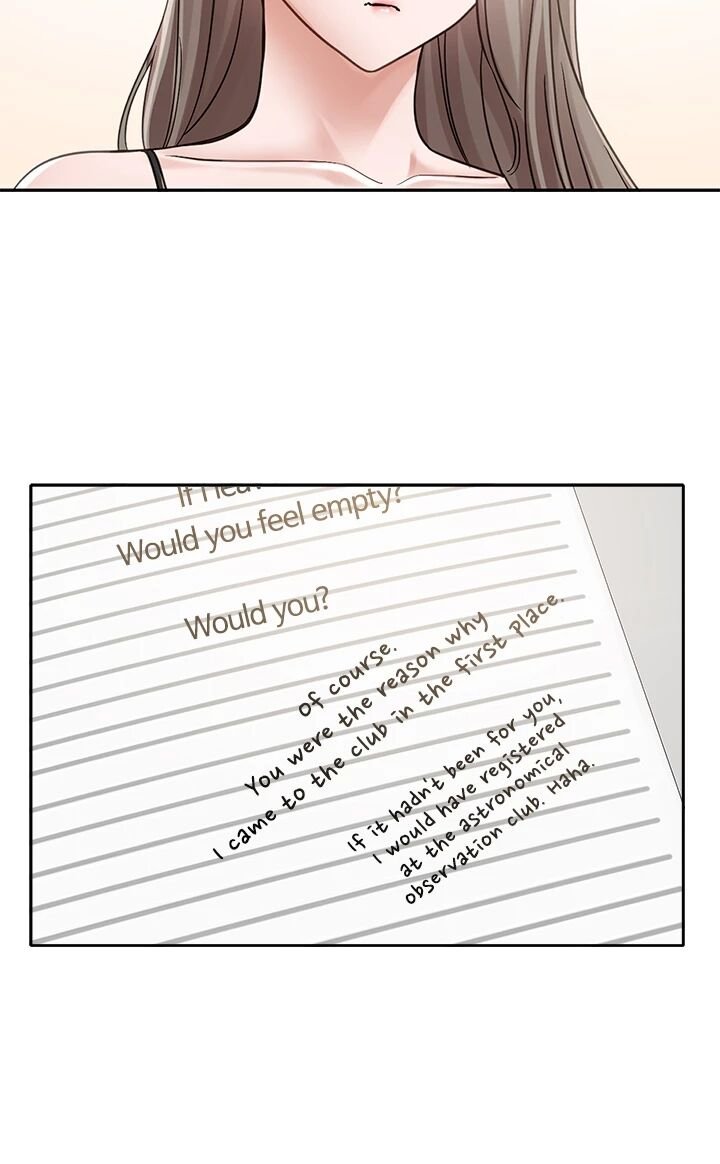 Would you feel empty?
Would you?
of course.
You were the reason why
I came to the club in the first place.
If it hadn't been for you,
I would have registered
at the astronomical
observation club. Haha.